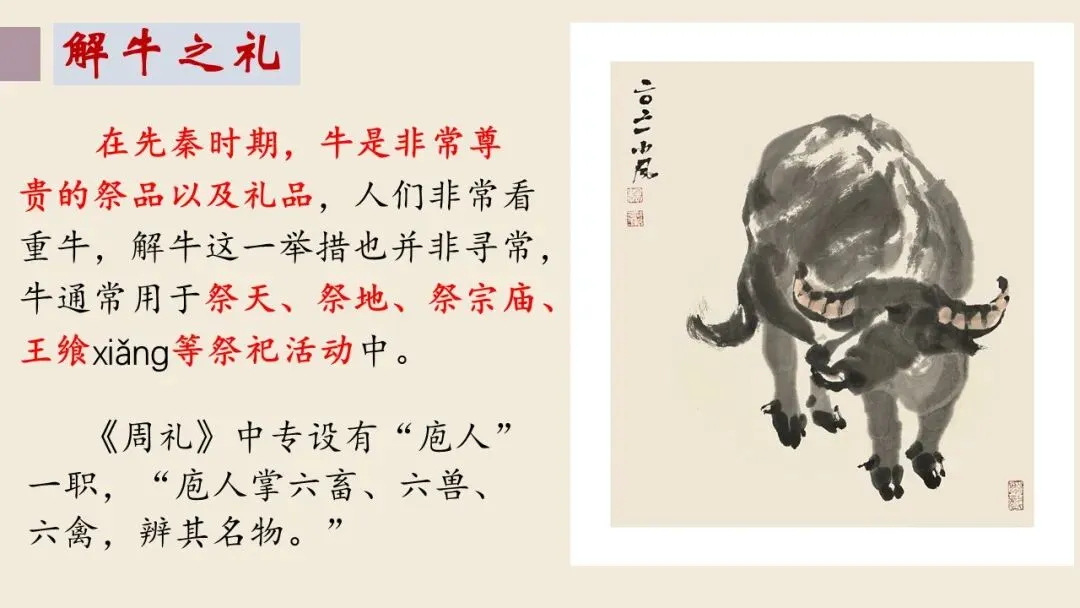 解牛之礼
在先秦时期，牛是非常尊
贵的祭品以及礼品，人们非常看
重牛，解牛这一举措也并非寻常，
牛通常用于祭天、祭地、祭宗庙、
王飨xiǎng等祭祀活动中。
《周礼》中专设有“庖人”
一职，“庖人掌六畜、六兽、
六禽，辨其名物。”
二〇二一小风